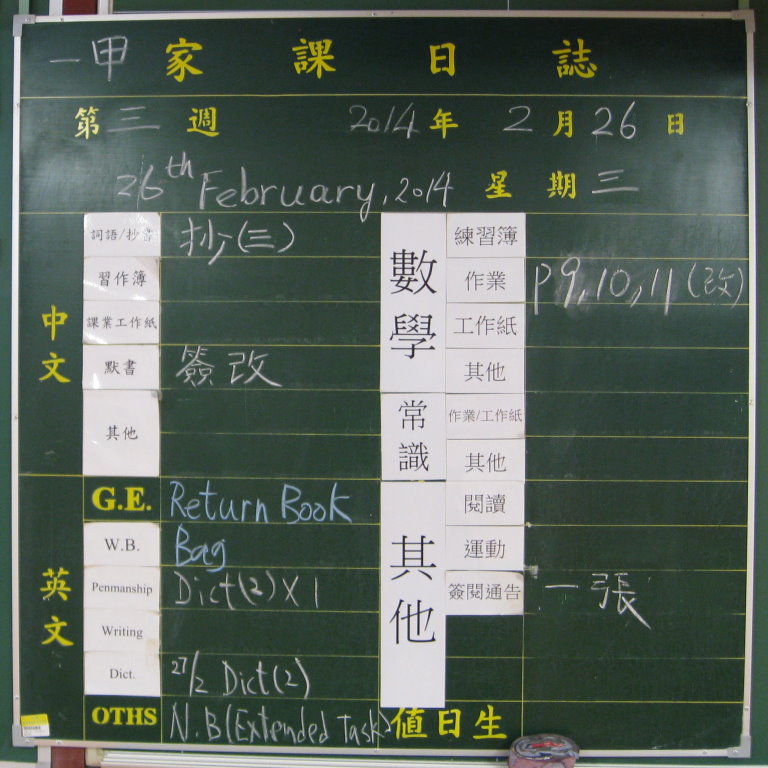 一甲 家 課 日 誌
第 三 週 2014 年 2 月 26 日
26th February, 2014 星 期 三
中文
詞語/抄書 抄(三)
習作簿
課業工作紙
默書 簽改
其他
英文
G.E. Return Book
W.B. Bag
Penmanship Dict(2)X1
Writing
Dict. 27/2 Dict(2)
OTHS N.B(Extended Task)
數學
練習簿
作業 p9,10,11(改)
工作紙
其他
常識
作業/工作紙
其他
其他
閱讀
運動
簽閱通告 一張
值日生